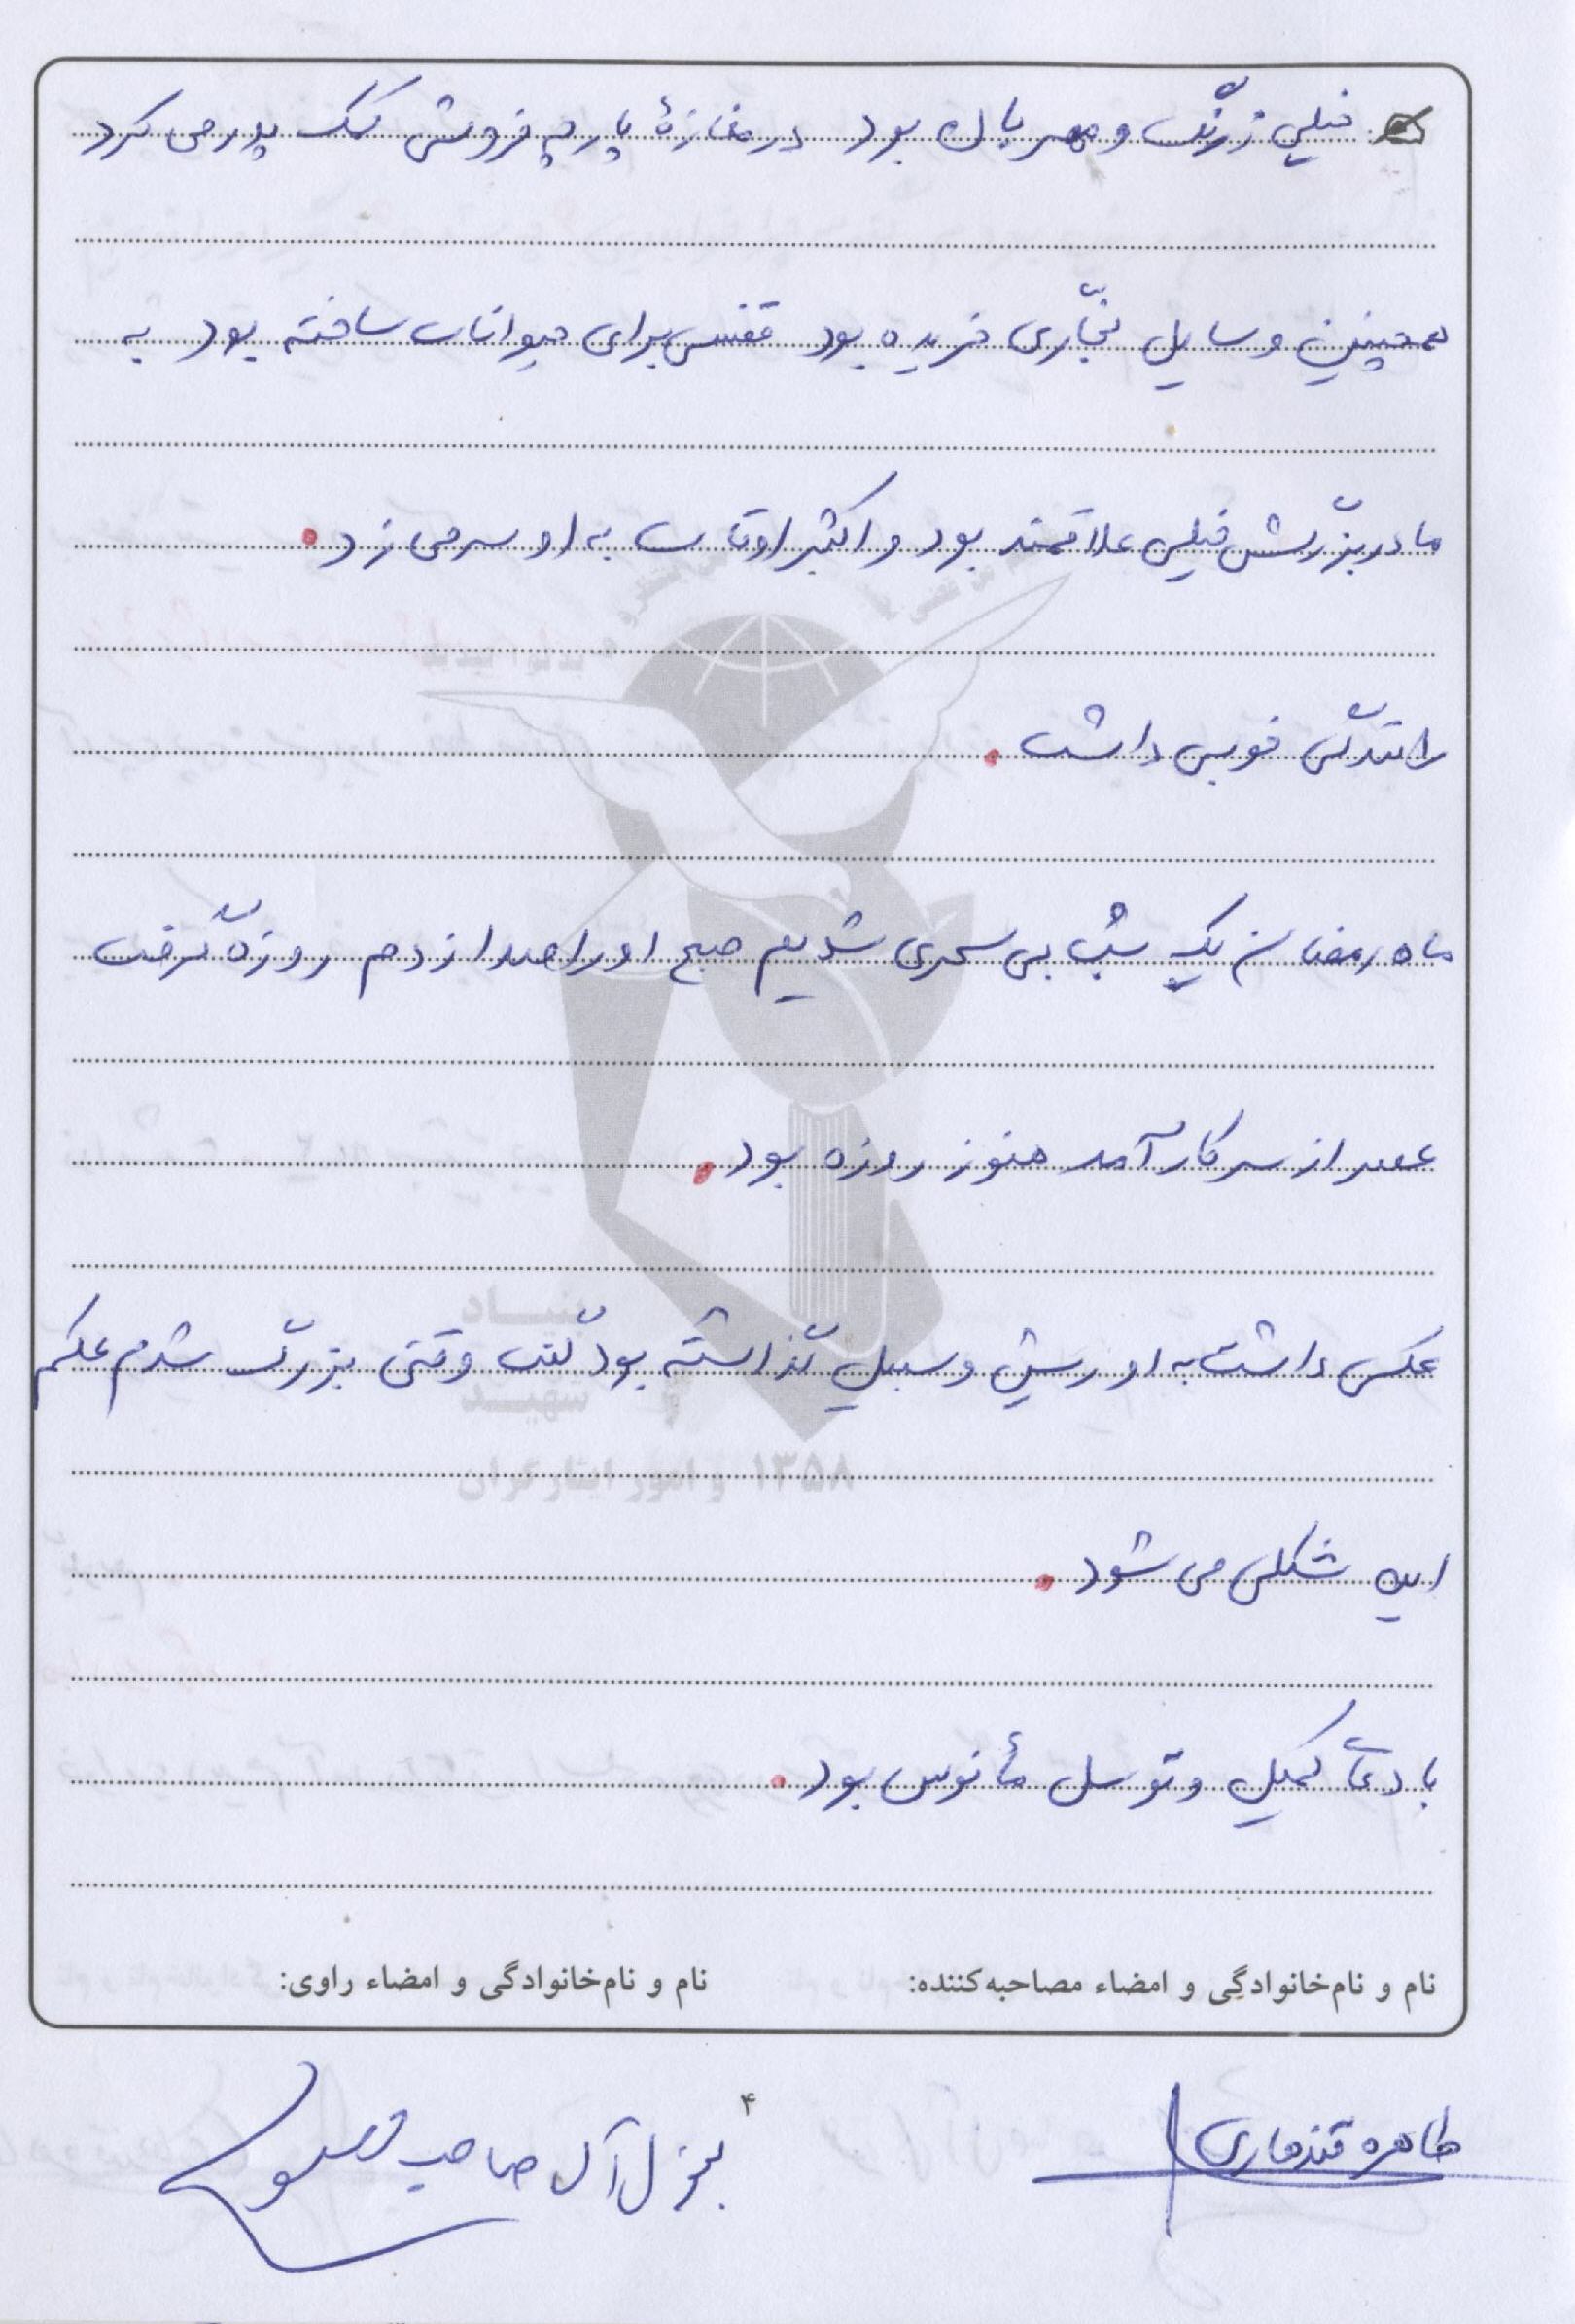 خیلی زرنگ و مهربان بود در مغازهٔ پارچه فروشی کمک پدر می کرد
همچنین وسایل نجّاری خریده بود قفس برای حیوانات ساخته بود به
مادربزرگش خیلی علاقمند بود و اکثر اوقات به او سر می زد.
رانندگی خوبی داشت.
ماه رمضان یک شب بی سحری شدیم صبح او را صدا زدم روزه گرفت
عصر از سر کار آمد هنوز روزه بود.
عکس داشت به او ریش و سبیل گذاشته بود گفت وقتی بزرگ شدم عکسم
این شکلی می شود.
با دعای کمیل و توسل مأنوس بود.
بنیاد
شهید
و امور ایثارگران ۱۳۵۸
نام و نام‌خانوادگی و امضاء مصاحبه‌کننده:
نام و نام‌خانوادگی و امضاء راوی:
طاهره قندهاری
۴
آل صاحب فصول